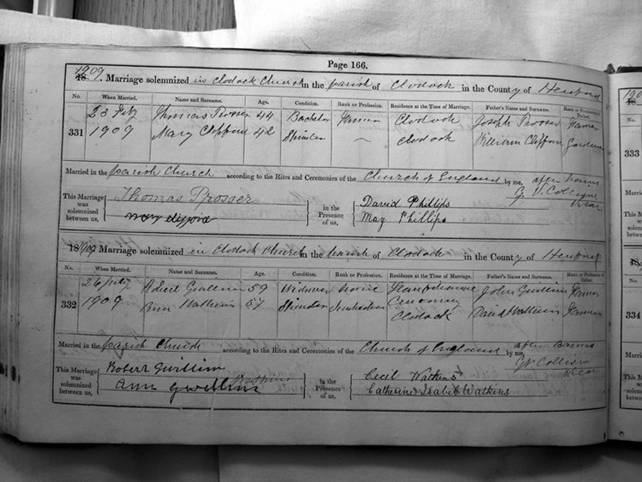 Page 166.
1909. Marriage solemnized in Clodock Church in the parish of Clodock in the County of Hereford
No. When Married. Name and Surname. Age. Condition. Rank or Profession. Residence at the Time of Marriage. Father's Name and Surname. Rank or Profession of Father.
331 23 Thomas Prosser 44 Bachelor Farmer Clodock Joseph Prosser Farmer
1909 Mary Clifford 42 Spinster — Clodock William Clifford Gardener
Married in the parish Church according to the Rites and Ceremonies of the Church of England by me, after Banns
This Marriage was solemnized between us, Thomas Prosser in the Presence of us, David Phillips
May Phillips
Vicar
1909 Marriage solemnized in Clodock Church in the parish of Clodock in the County of Hereford
No. When Married. Name and Surname. Age. Condition. Rank or Profession. Residence at the Time of Marriage. Father's Name and Surname. Rank or Profession of Father.
332 26 Robert Gwillim 59 Widower John Gwillim Farmer
1909 Ann Watkins 57 Spinster Clodock David Watkins Farmer
Married in the parish Church according to the Rites and Ceremonies of the Church of England by me, after Banns
This Marriage was solemnized between us, Robert Gwillim in the Presence of us, Cecil Watkins
Ann Gwillim Watkins Catherine Isabel Watkins
Vicar
333
334